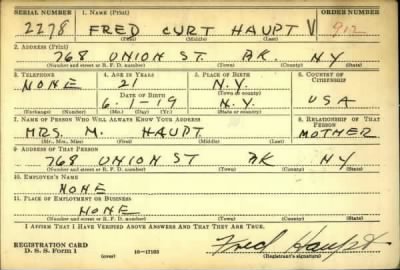 SERIAL NUMBER 1. NAME (Print) ORDER NUMBER
2278 FRED CURT HAUPT V 912
(First) (Middle) (Last)
2. ADDRESS (Print)
768 UNION ST. BK. NY
(Number and street or R. F. D. number) (Town) (County) (State)
3. TELEPHONE 4. AGE IN YEARS 5. PLACE OF BIRTH 6. COUNTRY OF CITIZENSHIP
NONE 21 N.Y.
DATE OF BIRTH (Town or county)
6-1-19 N.Y. USA
(Exchange) (Number) (Mo.) (Day) (Yr.) (State or country)
7. NAME OF PERSON WHO WILL ALWAYS KNOW YOUR ADDRESS 8. RELATIONSHIP OF THAT PERSON
MRS. M. HAUPT MOTHER
(Mr., Mrs., Miss) (First) (Middle) (Last)
9. ADDRESS OF THAT PERSON
768 UNION ST BK NY
(Number and street or R. F. D. number) (Town) (County) (State)
10. EMPLOYER'S NAME
NONE
11. PLACE OF EMPLOYMENT OR BUSINESS
NONE
(Number and street or R. F. D. number) (Town) (County) (State)
I AFFIRM THAT I HAVE VERIFIED ABOVE ANSWERS AND THAT THEY ARE TRUE.
REGISTRATION CARD
D. S. S. Form 1 16-17105 Fred Haupt
(over) (Registrant's signature)